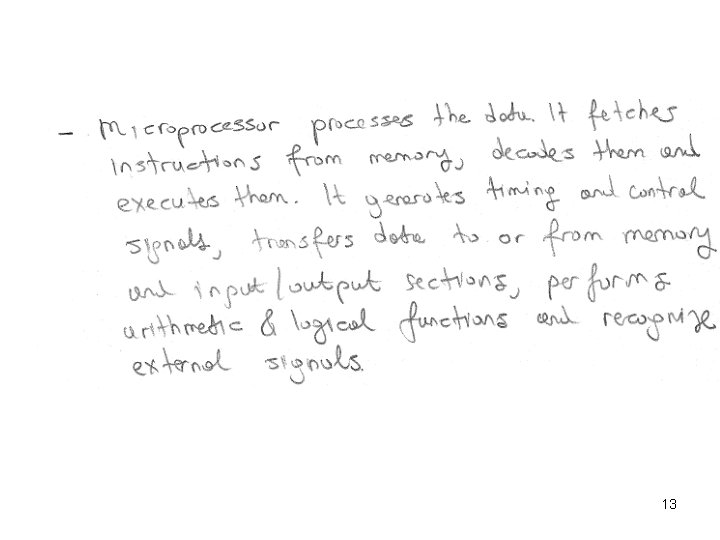 - Microprocessor processes the data. It fetches
instructions from memory, decodes them and
executes them. It generates timing and control
signals, transfers data to or from memory
and input/output sections, performs
arithmetic & logical functions and recognize
external signals.
13